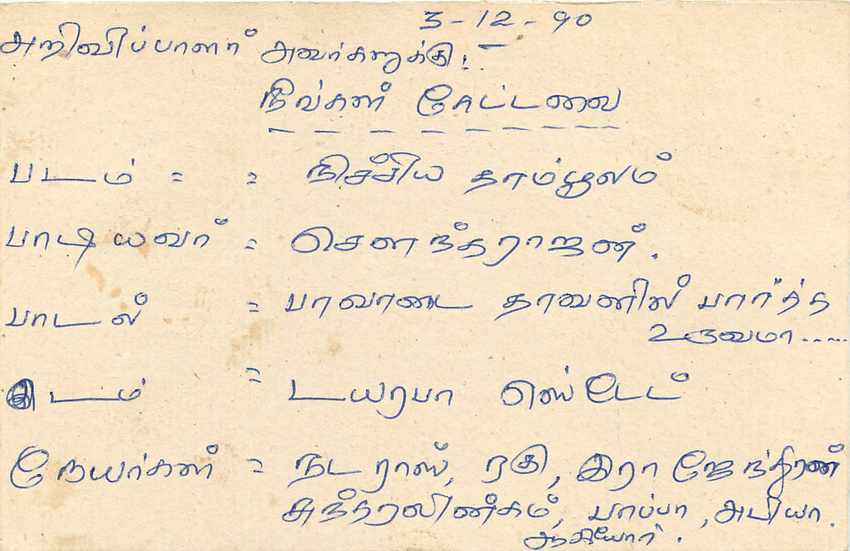 3-12-90
அறிவிப்பாளர் அவர்களுக்கு!
நீங்கள் கேட்டவை
படம் = = நிச்சிய தாம்பூலம்
பாடியவர் = சௌந்தராஜன்.
பாடல் = பாவாடை தாவணியில் பார்த்த
உருவமா.....
இடம் = டயரபா எஸ்டேட்
நேயர்கள் = நடராஸ், ரகு, இராஜேந்திரன்
சுந்தரலிங்கம், பாப்பா, அபியா.
ஆகியோர்.